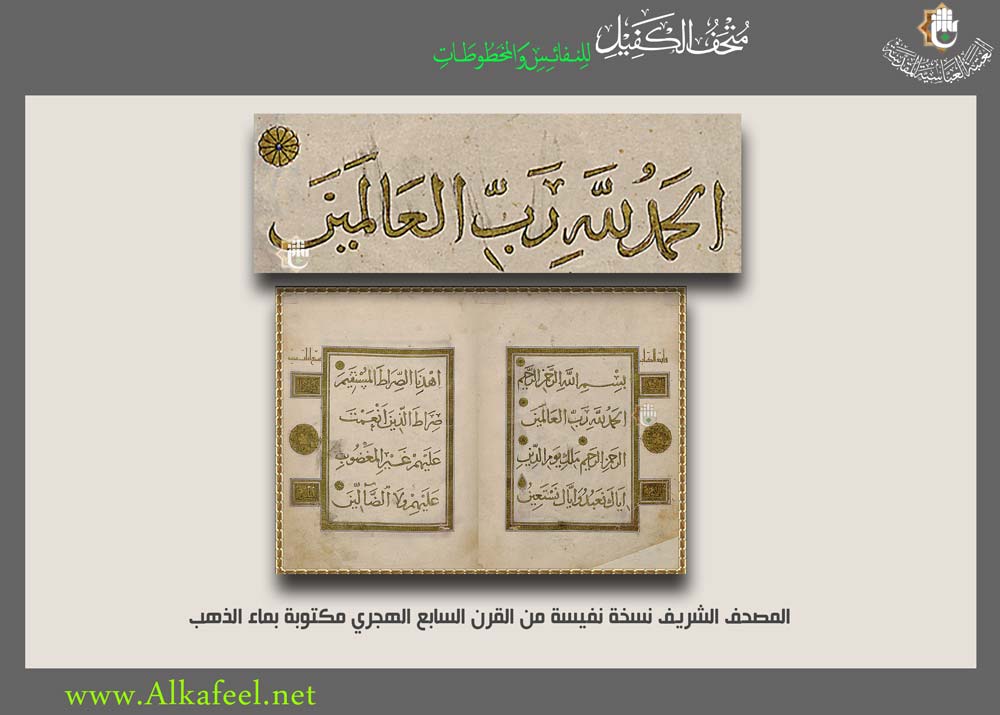 متحف الكفيل
للنفائس والمخطوطات
العتبة العباسية المقدسة
الحمد لله رب العالمين
بسم الله الرحمن الرحيم
الحمد لله رب العالمين
الرحمن الرحيم ملك يوم الدين
اياك نعبد واياك نستعين
اهدنا الصراط المستقيم
صراط الذين انعمت
عليهم غير المغضوب
عليهم ولا الضالين
المصحف الشريف نسخة نفيسة من القرن السابع الهجري مكتوبة بماء الذهب
www.Alkafeel.net